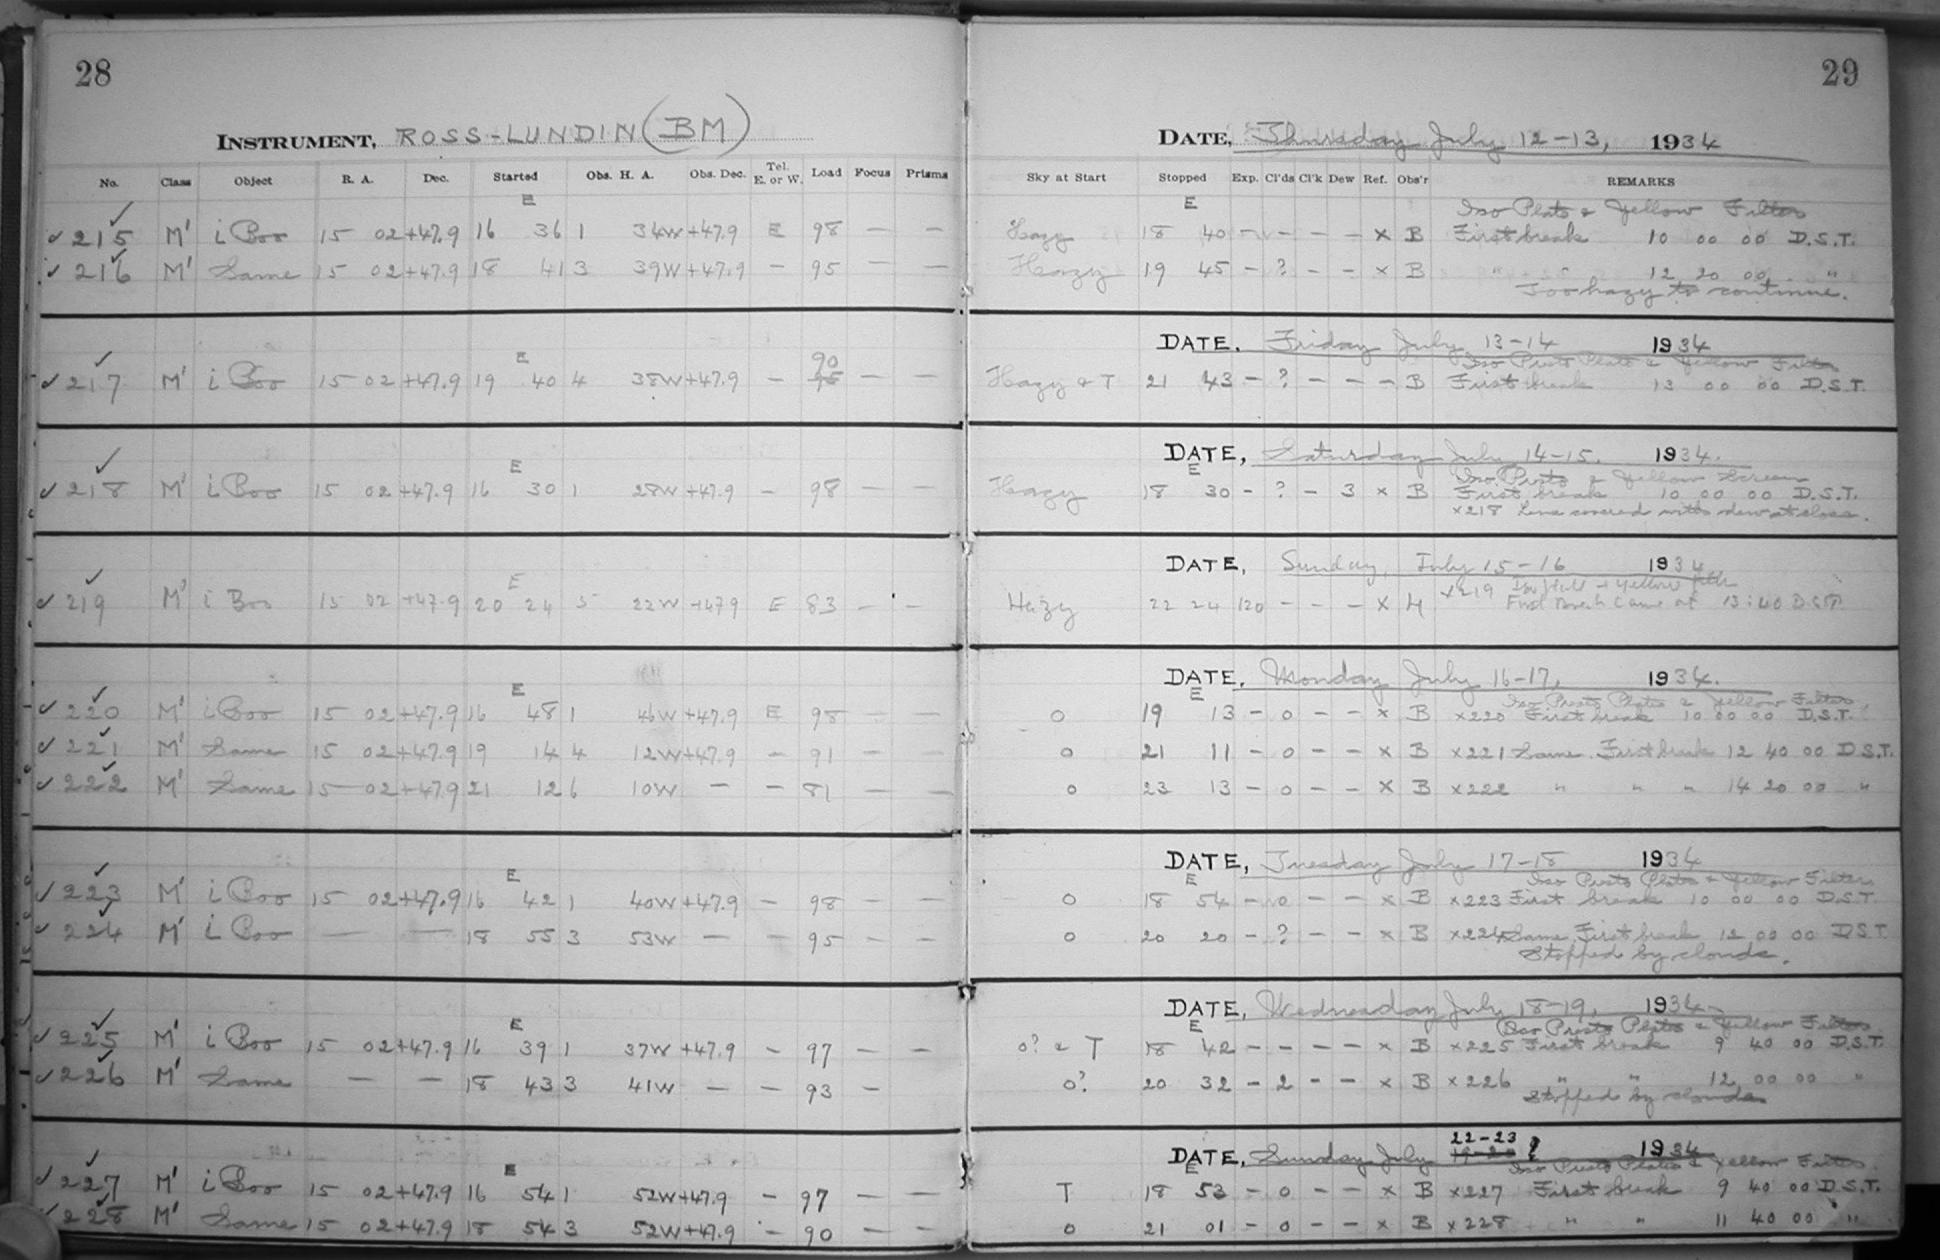 28
INSTRUMENT, ROSS-LUNDIN (BM)
No. Class Object R. A. Dec. Started Obs. H. A. Obs. Dec. Tel. E. or W. Load Focus Prisms
E
✓ 215 M' i Boo 15 02 +47.9 16 36 1 34W +47.9 E 98 — —
✓ 216 M' Same 15 02 +47.9 18 41 3 39W +47.9 — 95 — —
E
✓ 217 M' i Boo 15 02 +47.9 19 40 4 38W +47.9 — 90 — —
E
✓ 218 M' i Boo 15 02 +47.9 16 30 1 28W +47.9 — 98 — —
E
✓ 219 M' i Boo 15 02 +47.9 20 24 5 22W +47.9 E 83 — —
E
✓ 220 M' i Boo 15 02 +47.9 16 48 1 46W +47.9 E 98 — —
✓ 221 M' Same 15 02 +47.9 19 14 4 12W +47.9 — 91 — —
✓ 222 M' Same 15 02 +47.9 21 12 6 10W — — 81 — —
E
✓ 223 M' i Boo 15 02 +47.9 16 42 1 40W +47.9 — 98 — —
✓ 224 M' i Boo — — 18 55 3 53W — — 95 — —
E
✓ 225 M' i Boo 15 02 +47.9 16 39 1 37W +47.9 — 97 — —
✓ 226 M' Same — — 18 43 3 41W — — 93 —
E
✓ 227 M' i Boo 15 02 +47.9 16 54 1 52W +47.9 — 97 — —
✓ 228 M' Same 15 02 +47.9 18 54 3 52W +47.9 — 90 — —
29
DATE, Thursday July 12-13, 1934
Sky at Start Stopped Exp. Cl'ds Cl'k Dew Ref. Obs'r REMARKS
E Iso Plate & Yellow Filter
Hazy 18 40 — — — — × B First break 10 00 00 D.S.T.
Hazy 19 45 — ? — — × B " " 12 20 00 "
Too hazy to continue.
DATE, Friday July 13-14 1934
Iso Presto Plate & Yellow Filter
Hazy & T 21 43 — ? — — — B First break 13 00 00 D.S.T.
DATE, Saturday July 14-15. 1934.
E Iso Presto & Yellow Screen
Hazy 18 30 — ? — 3 × B First break 10 00 00 D.S.T.
×218 Lens covered with dew at close.
DATE, Sunday, July 15-16 1934
×219 & Yellow filt
Hazy 22 24 120 — — — × H First Break Came at 13:40 D.S.T.
DATE, Monday July 16-17, 1934.
E Iso Presto Plate & Yellow Filter,
0 19 13 — 0 — — × B ×220 First break 10 00 00 D.S.T.
0 21 11 — 0 — — × B ×221 Same. First break 12 40 00 D.S.T.
0 23 13 — 0 — — × B ×222 " " " 14 20 00 "
DATE, Tuesday July 17-18 1934
E Iso Presto Plate & Yellow Filter
0 18 54 — 0 — — × B ×223 First break 10 00 00 D.S.T.
0 20 20 — ? — — × B ×224 Same. First break 12 00 00 D.S.T.
Stopped by clouds.
DATE, Wednesday July 18-19, 1934
E Iso Presto Plate & Yellow Filter
0? & T 18 42 — — — — × B ×225 First break 9 40 00 D.S.T.
0? 20 32 — 2 — — × B ×226 " " 12 00 00 "
Stopped by clouds
22-23 ?
DATE, Sunday July 1934
E Iso Presto Plate & Yellow Filter.
T 18 53 — 0 — — × B ×227 First break 9 40 00 D.S.T.
0 21 01 — 0 — — × B ×228 " " 11 40 00 "